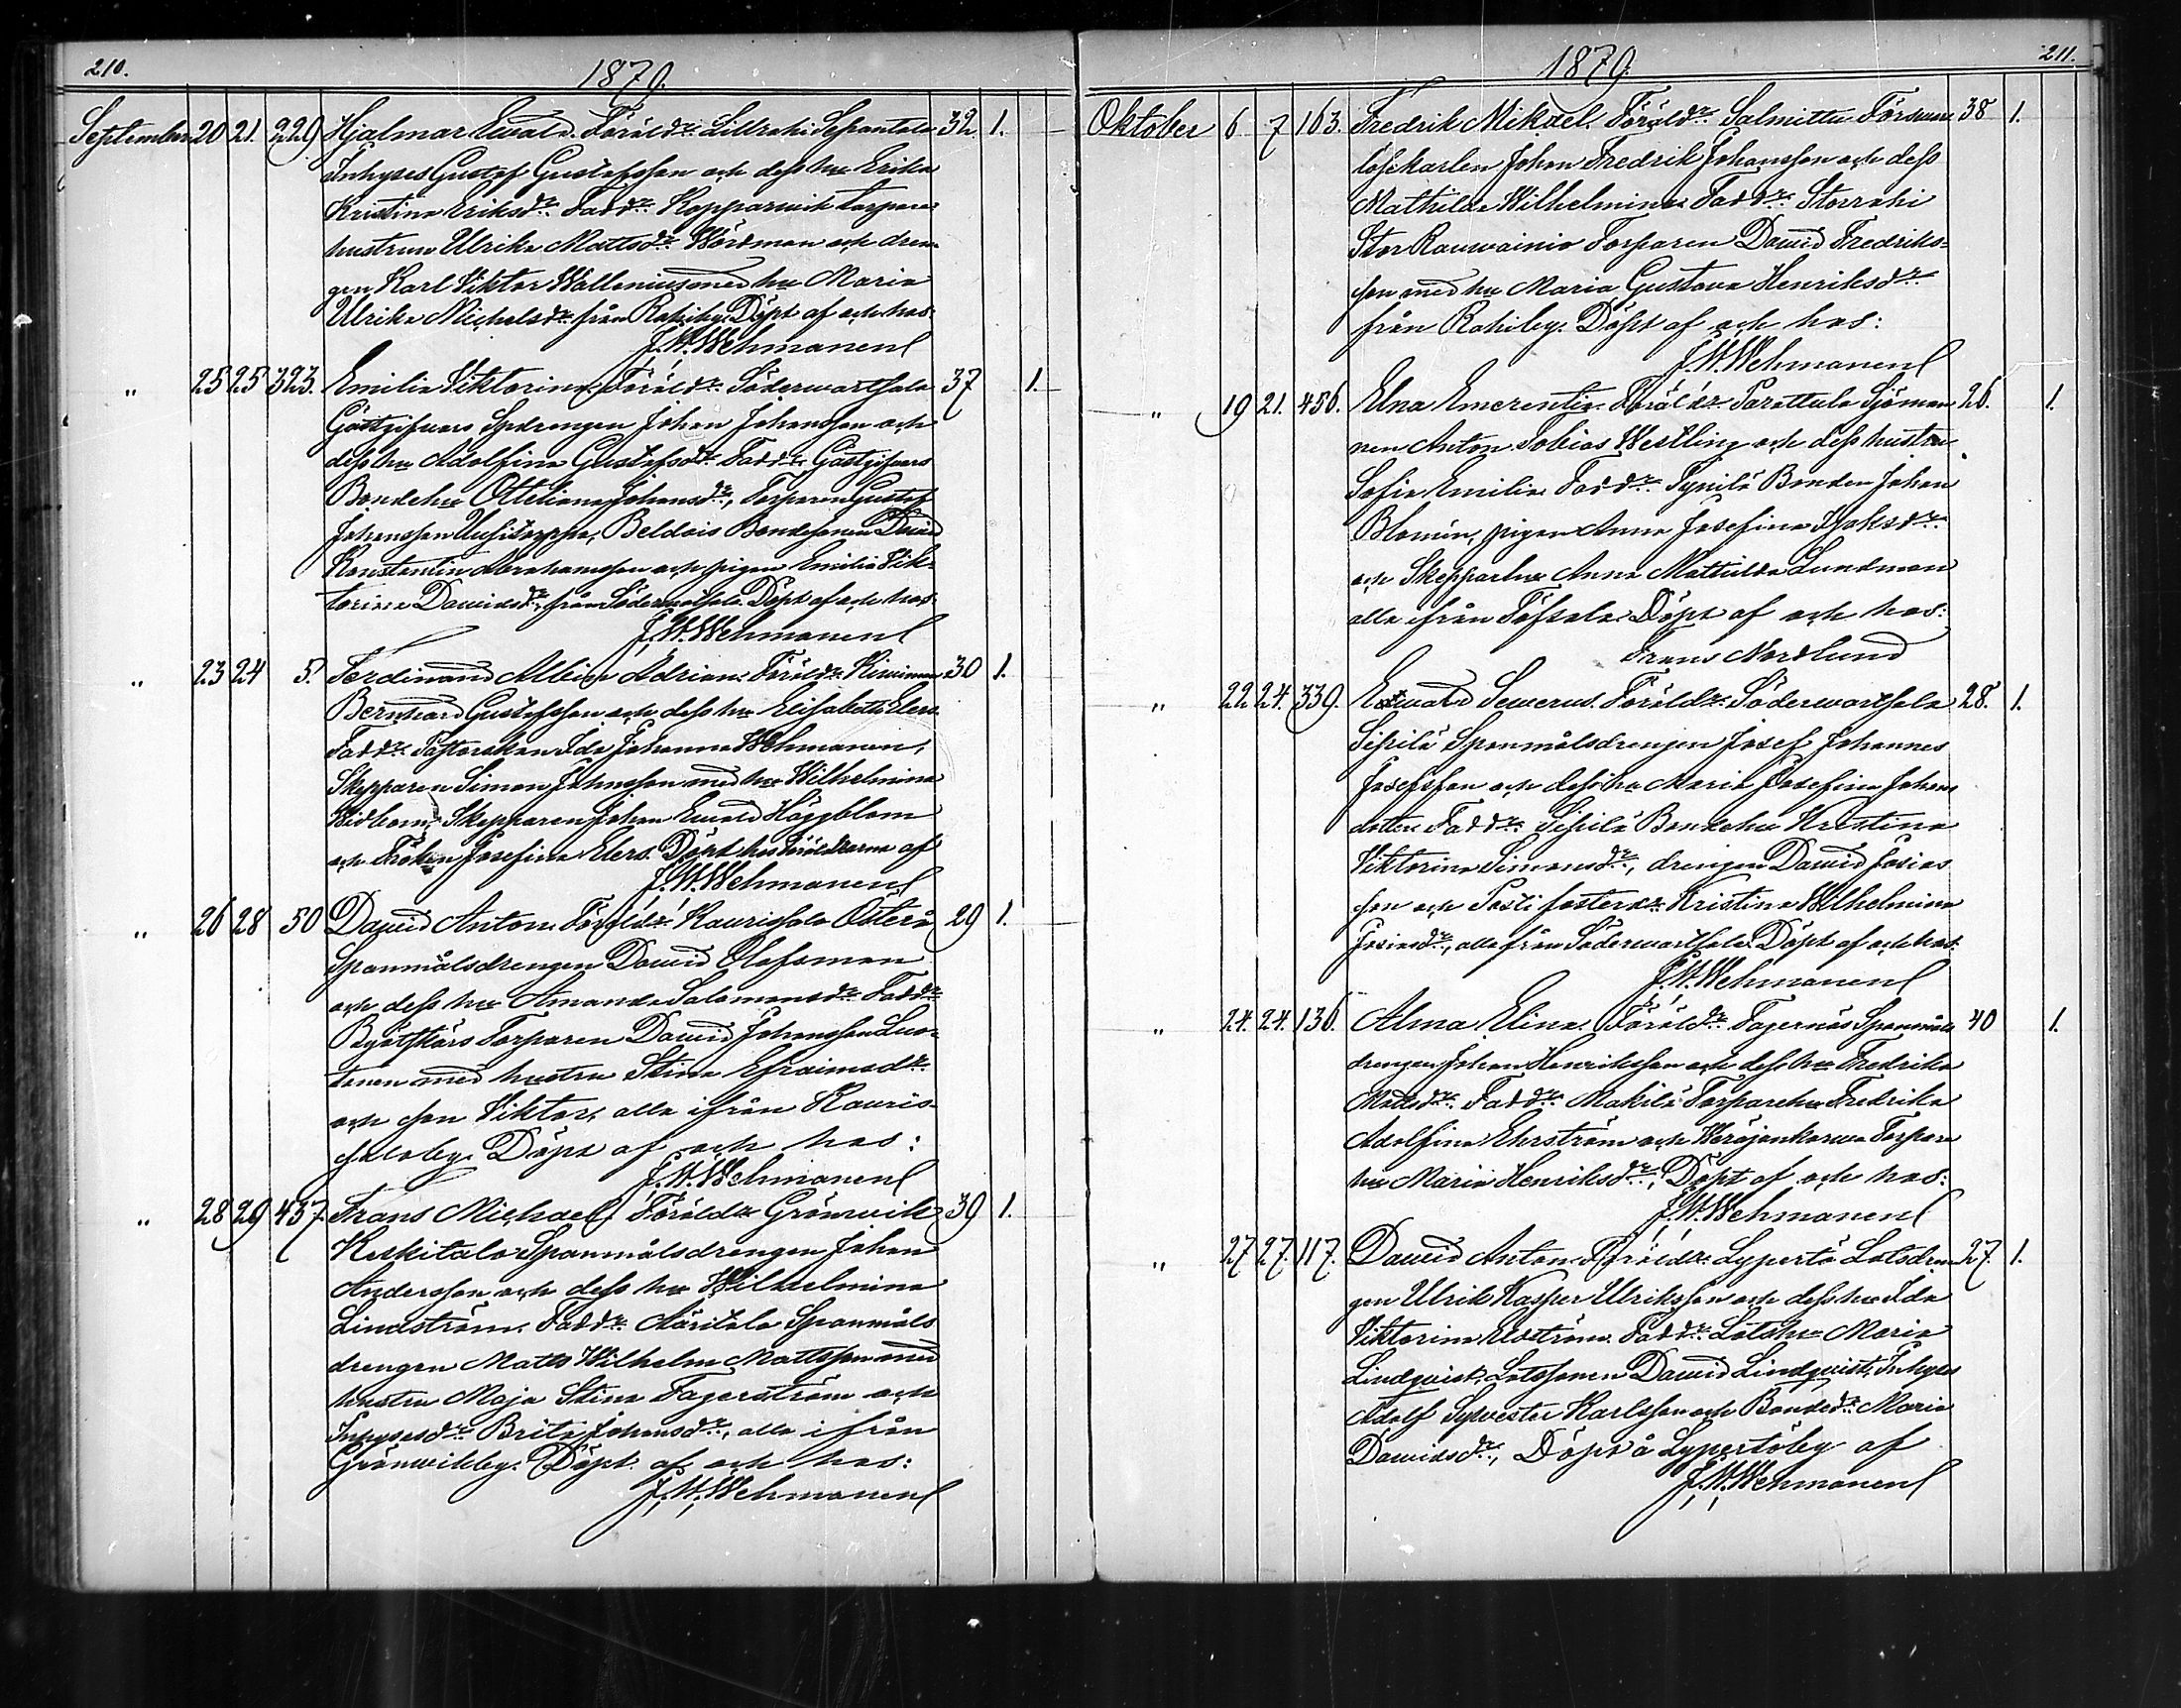 210.
1879.
September 20 21. 229 Hjalmar Ewald. Föräldr: Lillrahi Sepantalo 32. 1.
Inhyses Gustaf Gustafsson och dess hu Erika
Kristina Eriksdr. Faddr: Kopparwik torpare
hustrun Ulrika Mattsdr Wördman och dren-
gen Karl Viktor Wallenius med hu Maria
Ulrika Michelsdr från Rahiby. Döpt af och hos
J. W. Wehmanen
" 25 25 323. Emilia Viktorina. Föräldr: Söderwartsala 37 1.
Gästgifvars Spdrengen Johan Johansson och
dess hu Adolfina Gustafsdr. Faddr: Gästgifvars
Bondehu Ottiliana Johansdr, Torparen Gustaf
Johansson Uusitorppa, Beldois Bondesonen David
Konstantin Abrahamsson och pigan Emilia Vik-
torina Dawidsdr, från Söderwartsala. Döpt af och hos
J. W. Wehmanen
" 23 24 5. Ferdinand Albin Adrian. Föräldr: Kiwimaa 30 1.
Bernhard Gustafsson och dess hu Elisabeth Elers.
Faddr: Pastorskan Ida Johanna Wehmanen,
Skepparen Simon Johansson med hu Wilhelmina
Widbom, Skepparen Johan Ewald Häggblom
och Fröken Josefina Elers. Döpt hos föräldrarna af
J. W. Wehmanen
" 26 28 50 Dawid Anton. Föräldr: Kaurissalo Österå 29 1.
Spanmålsdrengen Dawid Olofsman
och dess hu Amanda Salomonsdr. Faddr:
Byötskärs Torparen Dawid Johansson Luo-
tonen med hustru Stina Efraimsdr
och son Viktor, alla ifrån Kauris-
saloby. Döpt af och hos:
J. W. Wehmanen
" 28 29 437. Frans Michael. Föräldr: Grönwik 39 1.
Keskitalo Spanmålsdrengen Johan
Andersson och dess hu Wilhelmina
Lindström. Faddr: Ääritalo Spanmåls
drengen Matts Wilhelm Mattsson med
hustru Maja Stina Fagerström och
Inhysesdr Brita Johansdr, alla ifrån
Grönwikby. Döpt af och hos:
J. W. Wehmanen
211.
1879.
Oktober 6 7 163. Fredrik Mikael. Föräldr: Salmittu Försvars 38 1.
lösekarlen Johan Fredrik Johansson och dess
Mathilda Wilhelmina. Faddr: Storrahi
Stor Rauwainio Torparen Dawid Fredriks-
son med hu Maria Gustava Henriksdr
från Rahiby. Döpt af och hos:
J. W. Wehmanen
" 19 21. 456. Elna Emerentia. Föräldr: Parattula Sjöman 26. 1.
nen Anton Tobias Westling och dess hustru
Sofia Emilia. Faddr: Pynilä Bonden Johan
Blomén, pigan Anna Josefina Isaksdr
och Skepparhu Anna Mathilda Lundman
alla från Töfsala. Döpt af och hos:
Frans Nordlund
" 22 24. 339. Edward Sewerus. Föräldr: Söderwartsala 28. 1.
Sipilä Spanmålsdrengen Josef Johannes
Josefsson och dess hu Maria Josefina Johans
dotter. Faddr: Sipilä Bondehu Kristina
Viktorina Simonsdr, drengen Dawid Josias
son och Posti fosterdr Kristina Wilhelmina
Josiasdr, alla från Söderwartsala. Döpt af och hos:
J. W. Wehmanen
" 24. 24. 136. Alma Elina. Föräldr: Fagernäs Spanmåls 40 1.
drengen Johan Henriksson och dess hu Fredrika
Mattsdr. Faddr: Makilä Torparehu Fredrika
Adolfina Ehrström och Weräjenkorwa Torpare
hu Maria Henriksdr, Döpt af och hos:
J. W. Wehmanen
" 27 27. 117. Dawid Anton. Föräldr: Lypertö Lotsdren 27. 1.
gen Ulrik Kasper Ulriksson och dess hu Ida
Viktorina Elvström. Faddr: Lotshu Maria
Lindqvist, Lotssonen Dawid Lindqvist, Inhyses
Adolf Sylvester Karlsson och Bondedr Maria
Dawidsdr, Döpt å Lypertöby af
J. W. Wehmanen